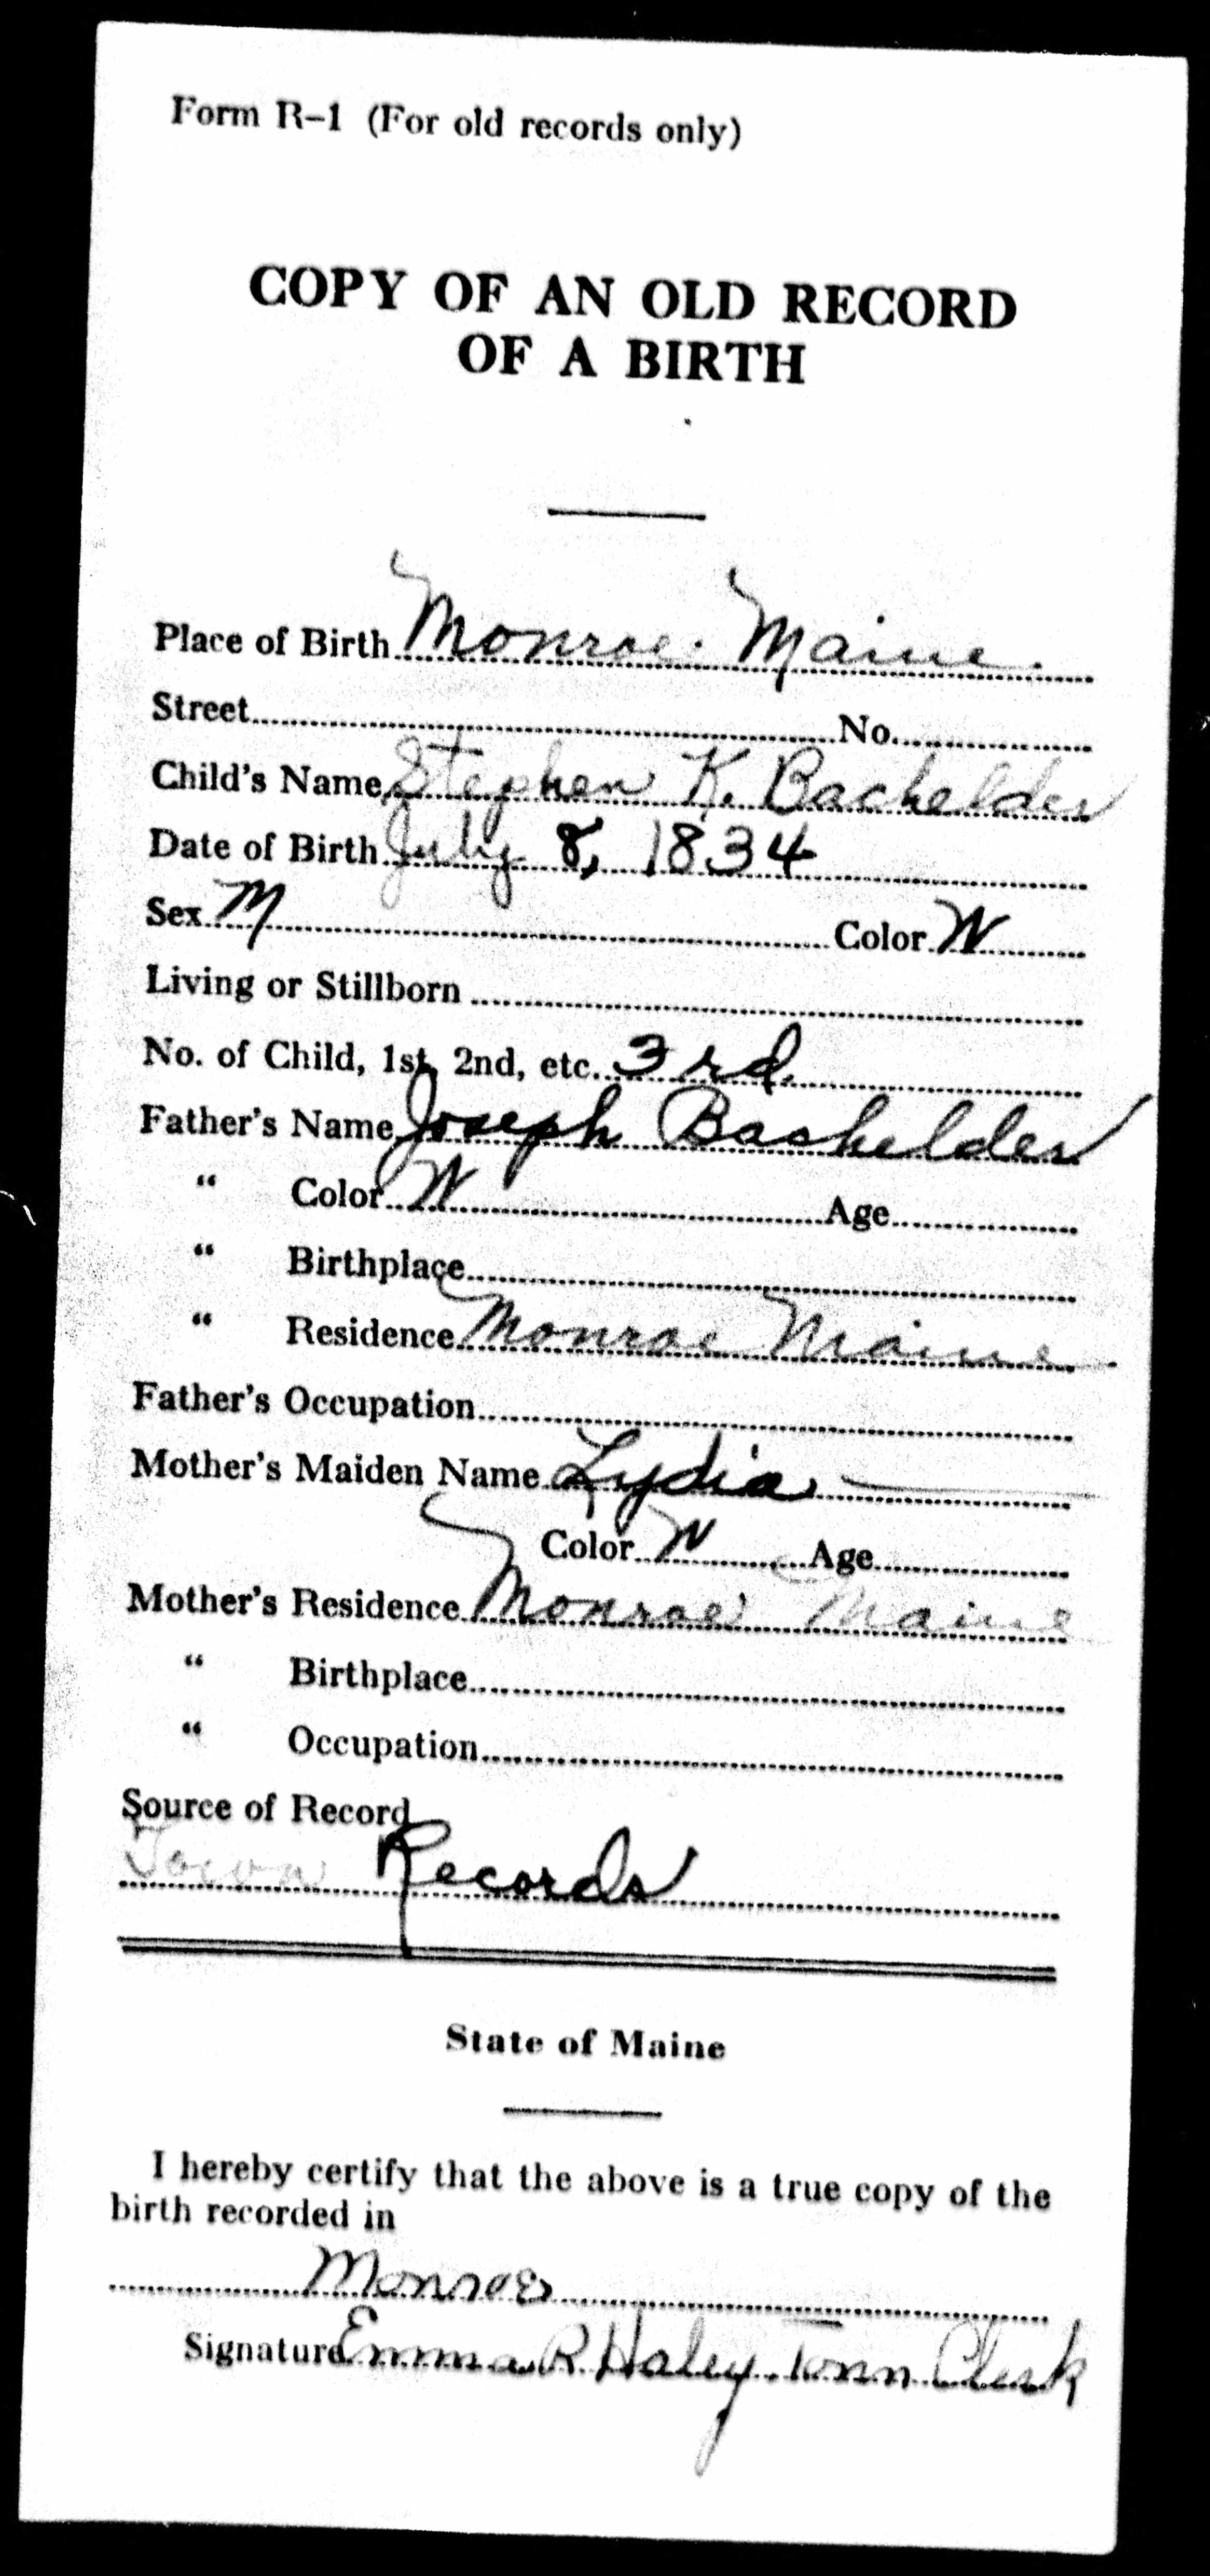 Form R-1 (For old records only)
COPY OF AN OLD RECORD
OF A BIRTH
Place of Birth Monroe. Maine.
Street No.
Child's Name Stephen K. Bachelder
Date of Birth July 8, 1834
Sex M Color W
Living or Stillborn
No. of Child, 1st, 2nd, etc. 3rd.
Father's Name Joseph Bachelder
" Color W Age
" Birthplace
" Residence Monroe Maine
Father's Occupation
Mother's Maiden Name Lydia —
Color W Age
Mother's Residence Monroe Maine
" Birthplace
" Occupation
Source of Record
Town Records
State of Maine
I hereby certify that the above is a true copy of the
birth recorded in
Monroe
Signature Emma R Haley. Town Clerk